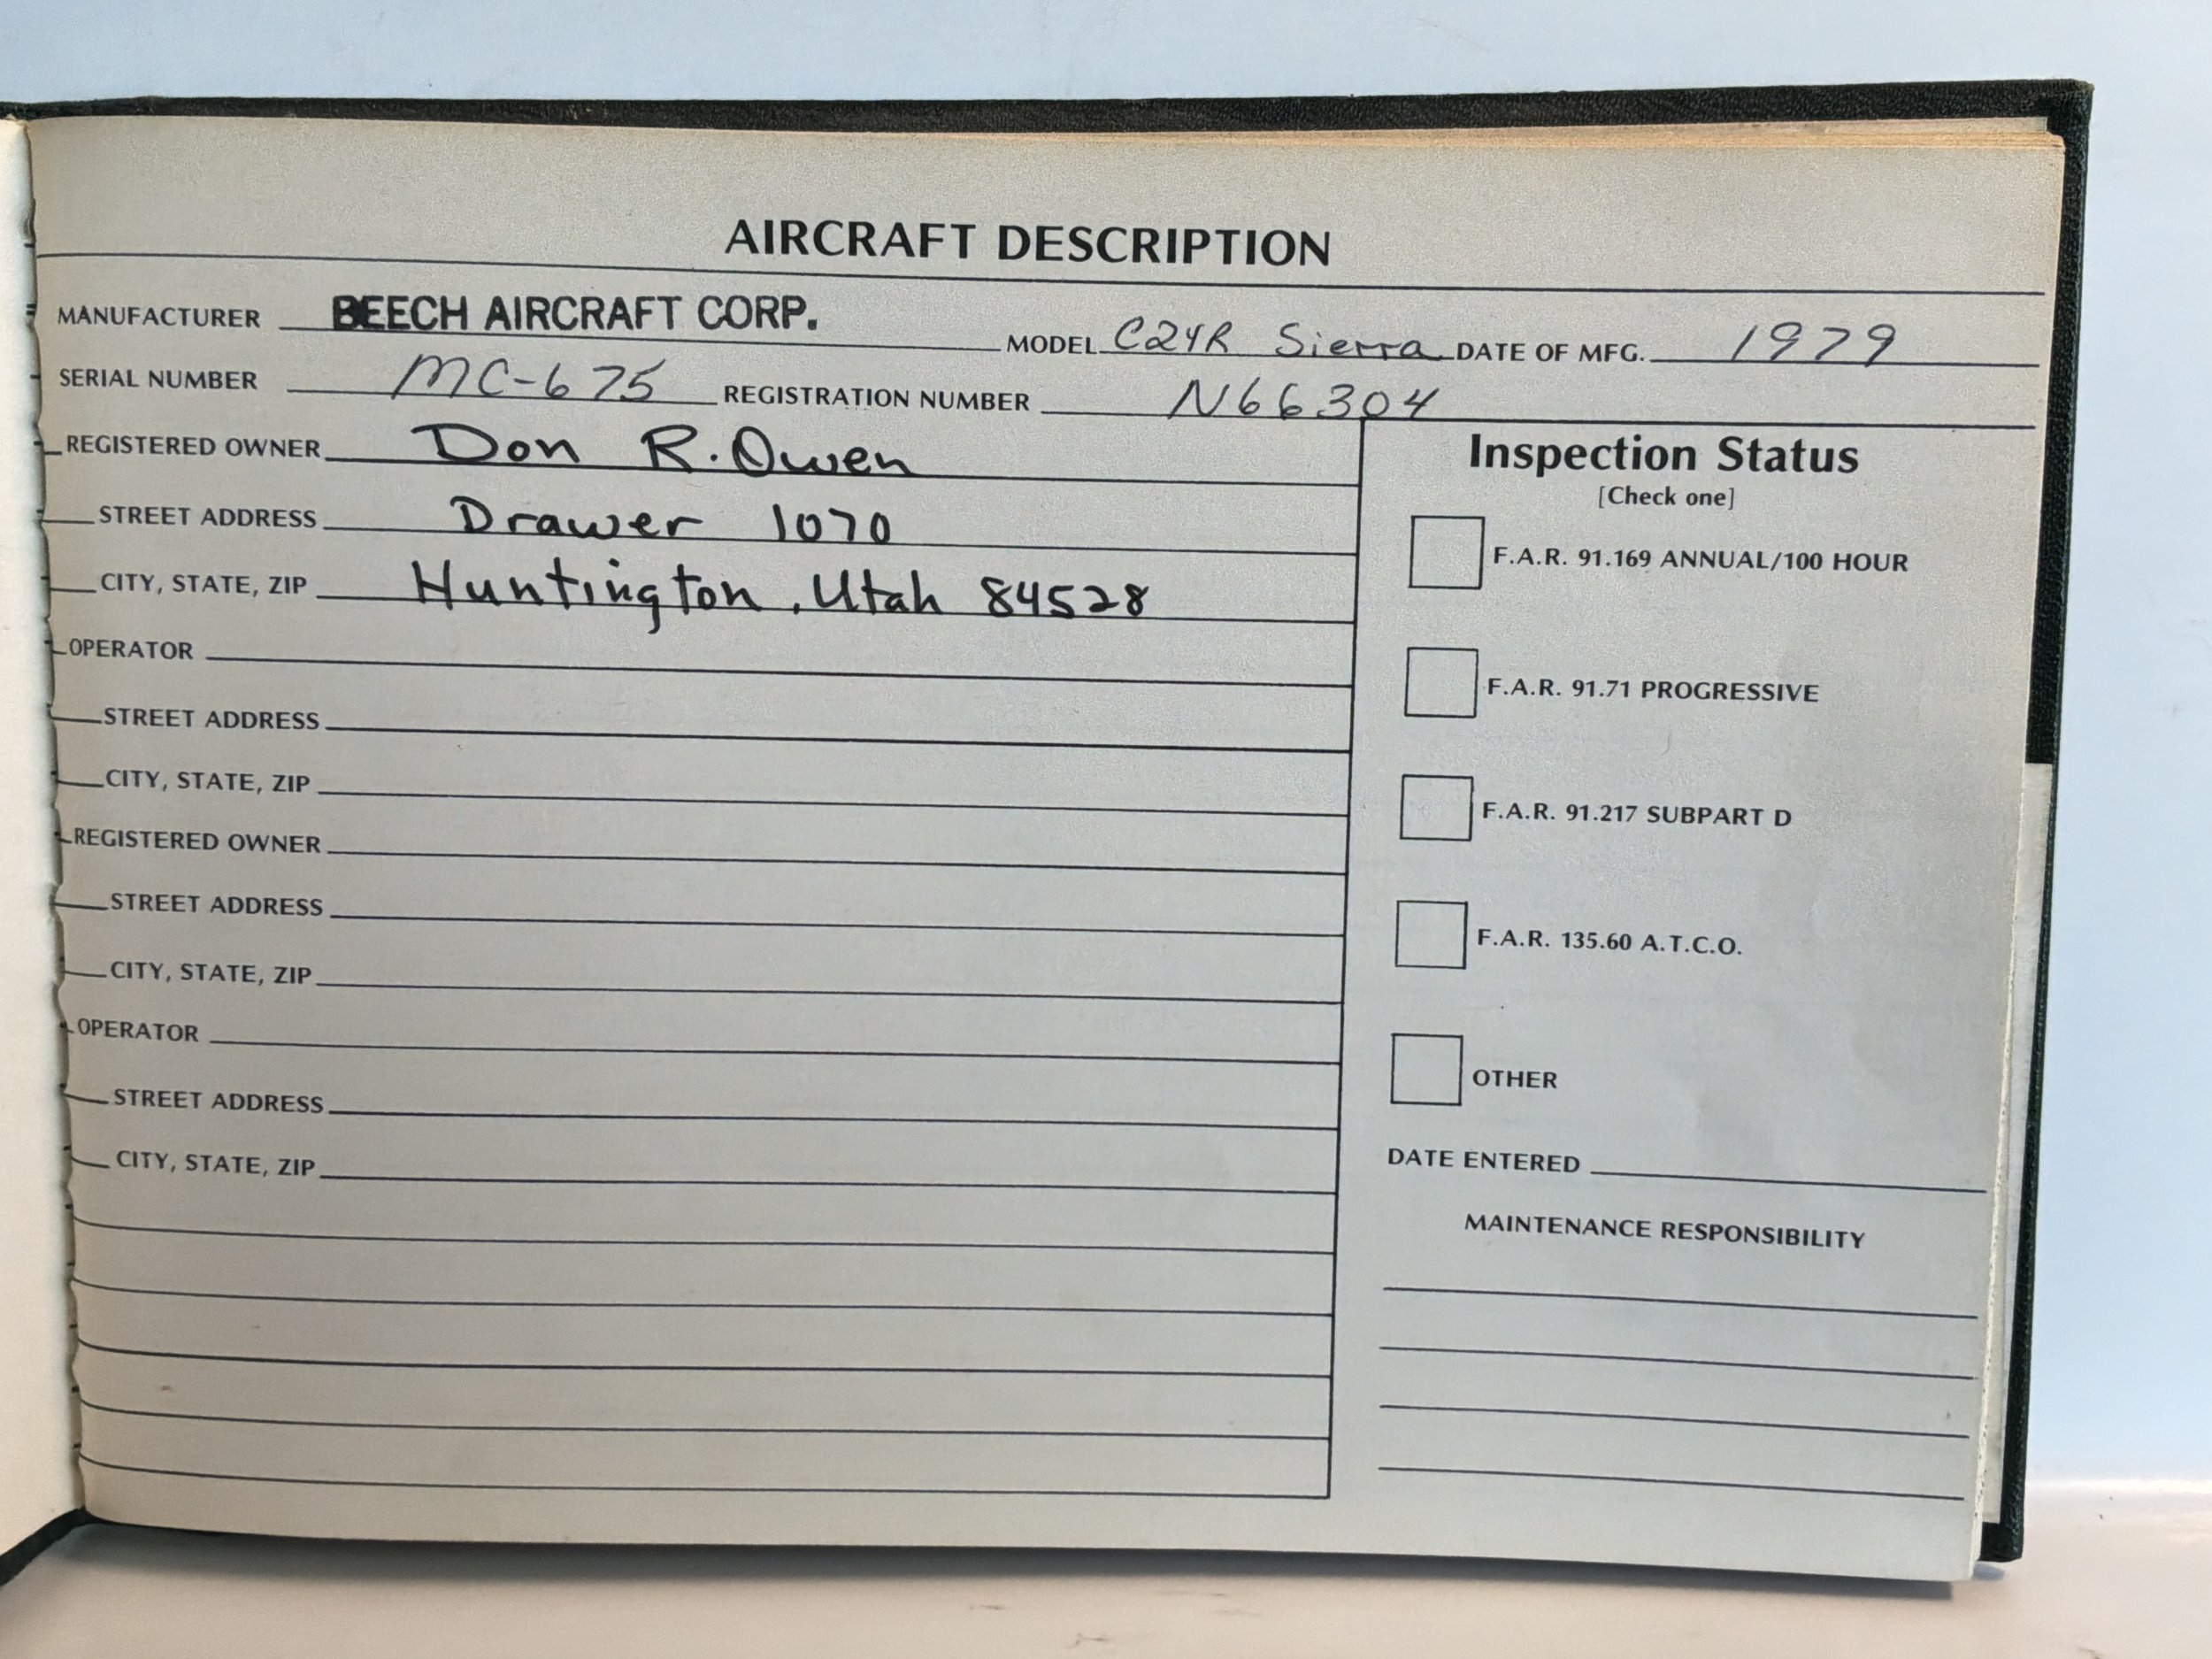 AIRCRAFT DESCRIPTION
MANUFACTURER BEECH AIRCRAFT CORP. MODEL C24R Sierra DATE OF MFG. 1979
SERIAL NUMBER MC-675 REGISTRATION NUMBER N66304
REGISTERED OWNER Don R. Owen
STREET ADDRESS Drawer 1070
CITY, STATE, ZIP Huntington, Utah 84528
OPERATOR
STREET ADDRESS
CITY, STATE, ZIP
REGISTERED OWNER
STREET ADDRESS
CITY, STATE, ZIP
OPERATOR
STREET ADDRESS
CITY, STATE, ZIP
Inspection Status
[Check one]
F.A.R. 91.169 ANNUAL/100 HOUR
F.A.R. 91.71 PROGRESSIVE
F.A.R. 91.217 SUBPART D
F.A.R. 135.60 A.T.C.O.
OTHER
DATE ENTERED
MAINTENANCE RESPONSIBILITY